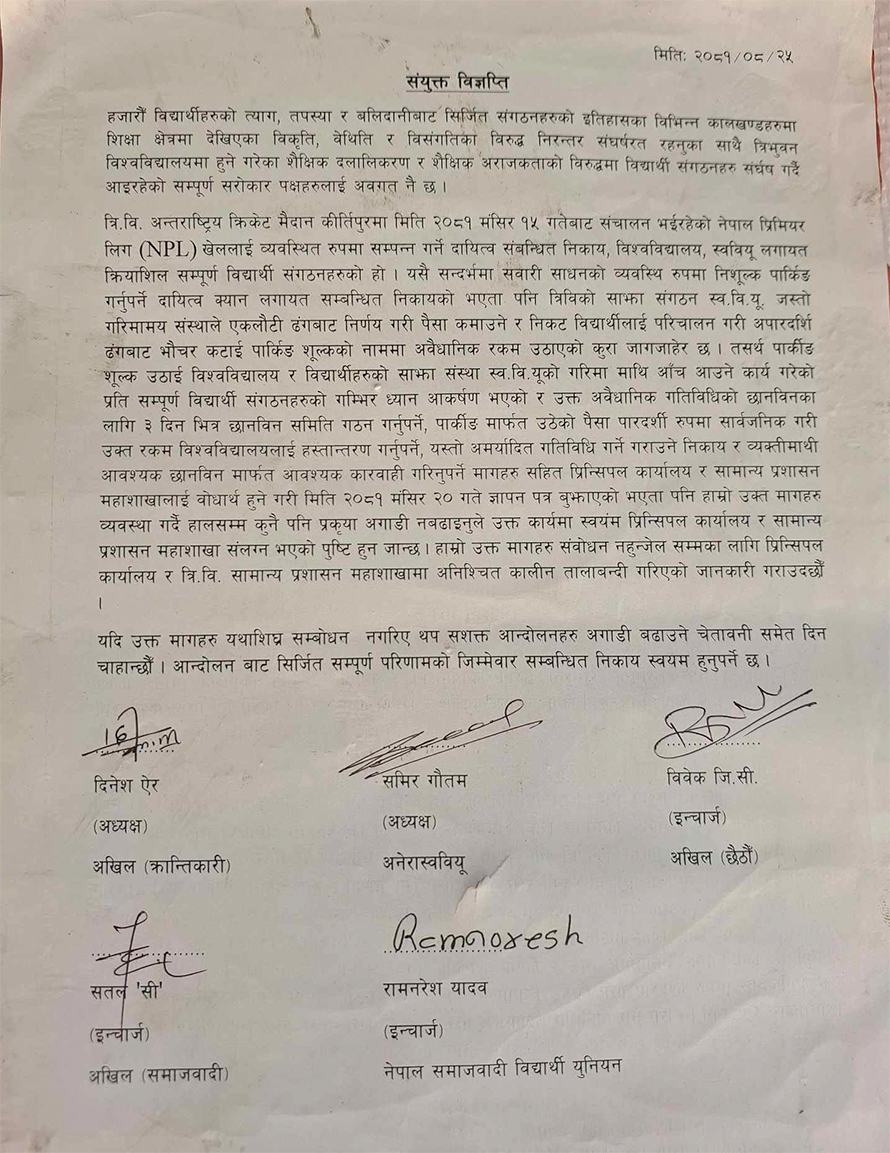 मितिः २०८१/०८/२५
संयुक्त विज्ञप्ति
हजारौँ विद्यार्थीहरुको त्याग, तपस्या र बलिदानीबाट सिर्जित संगठनहरुको इतिहासका विभिन्न कालखण्डहरुमा
शिक्षा क्षेत्रमा देखिएका विकृति, वेथिति र विसंगतिका विरुद्ध निरन्तर संघर्षरत रहनुका साथै त्रिभुवन
विश्वविद्यालयमा हुने गरेका शैक्षिक दलालिकरण र शैक्षिक अराजकताको विरुद्धमा विद्यार्थी संगठनहरु संर्घष गर्दै
आइरहेको सम्पूर्ण सरोकार पक्षहरुलाई अवगत नै छ ।
त्रि.वि. अन्तराष्ट्रिय क्रिकेट मैदान कीर्तिपुरमा मिति २०८१ मंसिर १५ गतेबाट संचालन भईरहेको नेपाल प्रिमियर
लिग (NPL) खेललाई व्यवस्थित रुपमा सम्पन्न गर्ने दायित्व संबन्धित निकाय, विश्वविद्यालय, स्ववियू लगायत
क्रियाशिल सम्पूर्ण विद्यार्थी संगठनहरुको हो । यसै सन्दर्भमा सवारी साधनको व्यवस्थि रुपमा निशूल्क पार्किङ
गर्नुपर्ने दायित्व क्यान लगायत सम्बन्धित निकायको भएता पनि त्रिविको साझा संगठन स्व.वि.यू. जस्तो
गरिमामय संस्थाले एकलौटी ढंगबाट निर्णय गरी पैसा कमाउने र निकट विद्यार्थीलाई परिचालन गरी अपारदर्शि
ढंगबाट भौचर कटाई पार्किङ शूल्कको नाममा अवैधानिक रकम उठाएको कुरा जागजाहेर छ । तसर्थ पार्कीङ
शूल्क उठाई विश्वविद्यालय र विद्यार्थीहरुको साझा संस्था स्व.वि.यूको गरिमा माथि आँच आउने कार्य गरेको
प्रति सम्पूर्ण विद्यार्थी संगठनहरुको गम्भिर ध्यान आकर्षण भएको र उक्त अवैधानिक गतिविधिको छानविनका
लागि ३ दिन भित्र छानविन समिति गठन गर्नुपर्ने, पार्कीङ मार्फत उठेको पैसा पारदर्शी रुपमा सार्वजनिक गरी
उक्त रकम विश्वविद्यालयलाई हस्तान्तरण गर्नुपर्ने, यस्तो अमर्यादित गतिविधि गर्ने गराउने निकाय र व्यक्तीमाथी
आवश्यक छानविन मार्फत आवश्यक कारवाही गरिनुपर्ने मागहरु सहित प्रिन्सिपल कार्यालय र सामान्य प्रशासन
महाशाखालाई वोधार्थ हुने गरी मिति २०८१ मंसिर २० गते ज्ञापन पत्र बुझाएको भएता पनि हाम्रो उक्त मागहरु
व्यवस्था गर्दै हालसम्म कुनै पनि प्रकृया अगाडी नबढाइनुले उक्त कार्यमा स्वयंम प्रिन्सिपल कार्यालय र सामान्य
प्रशासन महाशाखा संलग्न भएको पुष्टि हुन जान्छ । हाम्रो उक्त मागहरु संवोधन नहुन्जेल सम्मका लागि प्रिन्सिपल
कार्यालय र त्रि.वि. सामान्य प्रशासन महाशाखामा अनिश्चित कालीन तालाबन्दी गरिएको जानकारी गराउदछौँ
।
यदि उक्त मागहरु यथाशिघ्र सम्बोधन नगरिए थप सशक्त आन्दोलनहरु अगाडी बढाउने चेतावनी समेत दिन
चाहान्छौँ । आन्दोलन बाट सिर्जित सम्पूर्ण परिणामको जिम्मेवार सम्बन्धित निकाय स्वयम हुनुपर्ने छ ।
दिनेश ऐर
(अध्यक्ष)
अखिल (क्रान्तिकारी)
समिर गौतम
(अध्यक्ष)
अनेरास्ववियू
विवेक जि.सी.
(इन्चार्ज)
अखिल (छैठौँ)
सतल 'सी'
(इन्चार्ज)
अखिल (समाजवादी)
Ramnaresh
रामनरेश यादव
(इन्चार्ज)
नेपाल समाजवादी विद्यार्थी युनियन